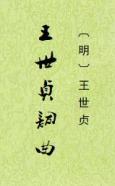 〔明〕王世贞
王世貞詞曲